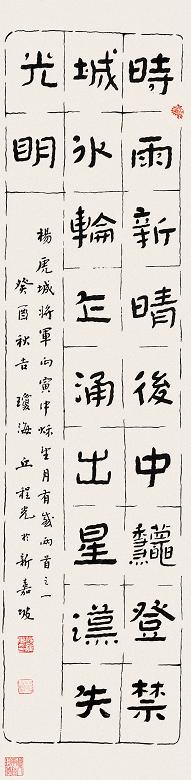 時雨新晴後中龝登禁
城氷輪乍涌出星漢失
光明
楊虎城將軍丙寅中秋坐月有感兩首之一
癸酉秋吉 瓊海 丘程光於新嘉坡